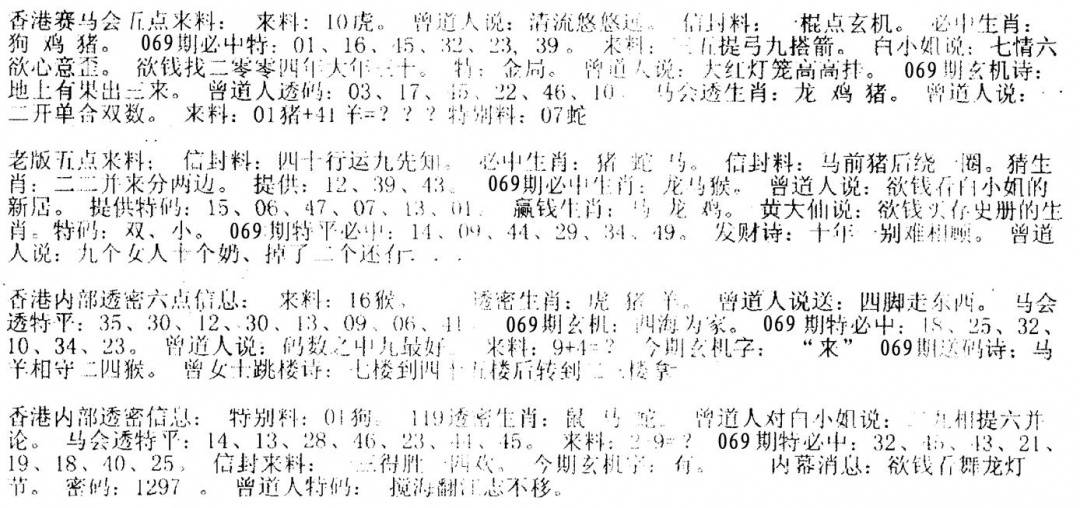 香港赛马会五点来料： 来料：10虎。 曾道人说：清流悠悠远。 信封料： 一棍点玄机。 必中生肖：
狗 鸡 猪。 069期必中特：01、16、45、32、23、39。 来料：三五提弓九搭箭。 白小姐说：七情六
欲心意歪。 欲钱找二零零四年大年三十。 特：金局。 曾道人说：大红灯笼高高挂。 069期玄机诗：
地上有果出三来。 曾道人透码：03、17、45、22、46、10 马会透生肖：龙 鸡 猪。 曾道人说：
二开单合双数。 来料：01猪+41羊=？？？特别料：07蛇
老版五点来料； 信封料：四十行运九先知。 必中生肖：猪 蛇 马。 信封料：马前猪后绕一圈。猜生
肖：二二并来分两边。 提供：12、39、43。 069期必中生肖：龙马猴。 曾道人说：欲钱看白小姐的
新居。 提供特码：15、06、47、07、13、01 赢钱生肖：马 龙 鸡。 黄大仙说：欲钱买存史册的生
肖。特码：双、小。 069期特平必中：14、09、44、29、34、49。 发财诗：十年一别难相顾。 曾道
人说：九个女人十个奶、掉了二个还有...
香港内部透密六点信息： 来料：16猴。 透密生肖：虎 猪 羊。 曾道人说送：四脚走东西。 马会
透特平：35、30、12、30、13、09、06、41 069期玄机：四海为家。 069期特必中：18、25、32、
10、34、23。 曾道人说：码数之中九最好 来料：9+4=？ 今期玄机字： “来” 069期送码诗：马
羊相守二四猴。 曾女士跳楼诗：七楼到四十五楼后转到二三楼拿
香港内部透密信息： 特别料：01狗。 119透密生肖：鼠 马 蛇。 曾道人对白小姐说：二九相提六并
论。 马会透特平：14、13、28、46、23、44、45。 来料：2-9=？ 069期特必中：32、45、43、21、
19、18、40、25。 信封来料： 三得胜一四欢。 今期玄机字：有。 内幕消息：欲钱看舞龙灯
节。 密码：1297 。 曾道人特码： 搅海翻江志不移。